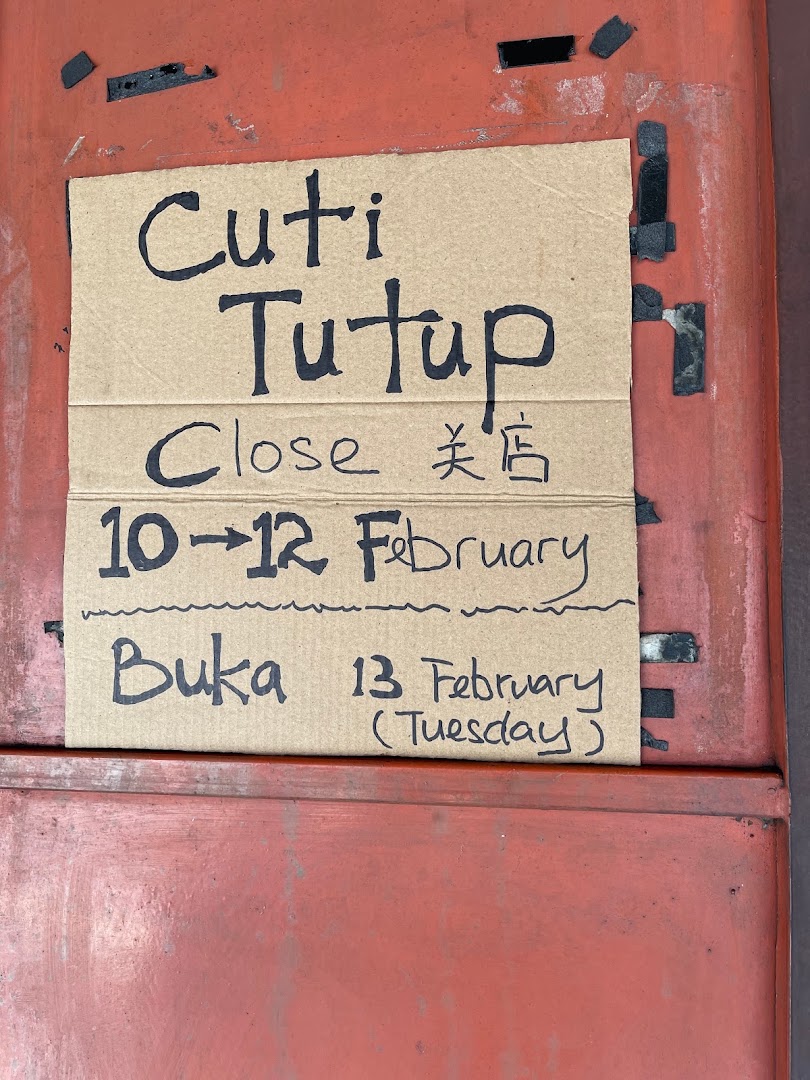 Cuti
Tutup
Close 关店
10→12 February
Buka 13 February
(Tuesday)